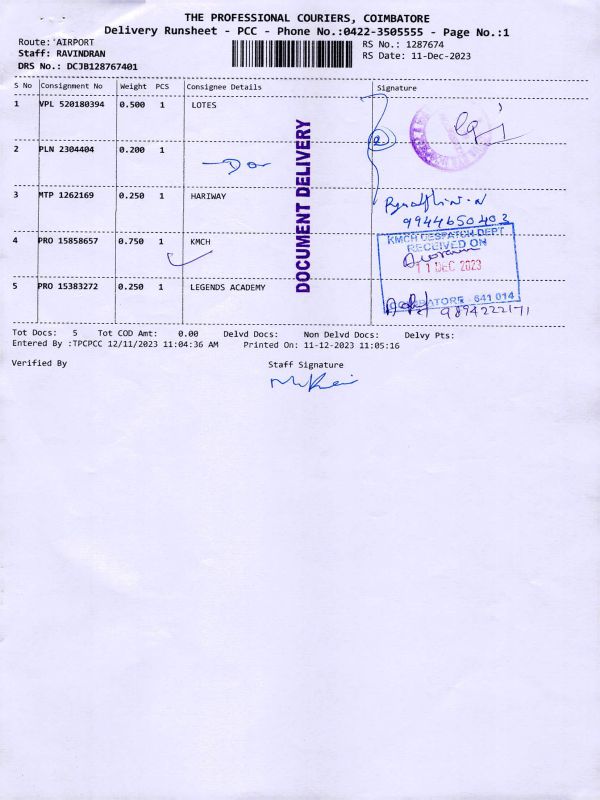 THE PROFESSIONAL COURIERS, COIMBATORE
Delivery Runsheet - PCC - Phone No.:0422-3505555 - Page No.:1
Route: AIRPORT
Staff: RAVINDRAN
DRS No.: DCJB128767401
RS No.: 1287674
RS Date: 11-Dec-2023
S No Consignment No Weight PCS Consignee Details Signature
1 VPL 520180394 0.500 1 LOTES
2 PLN 2304404 0.200 1
3 MTP 1262169 0.250 1 HARIWAY
9944650403
4 PRO 15858657 0.750 1 KMCH
KMCH DESPATCH DEPT
RECEIVED ON
11 DEC 2023
5 PRO 15383272 0.250 1 LEGENDS ACADEMY
COIMBATORE - 641 014
9894222171
DOCUMENT DELIVERY
Tot Docs: 5 Tot COD Amt: 0.00 Delvd Docs: Non Delvd Docs: Delvy Pts:
Entered By :TPCPCC 12/11/2023 11:04:36 AM Printed On: 11-12-2023 11:05:16
Verified By Staff Signature